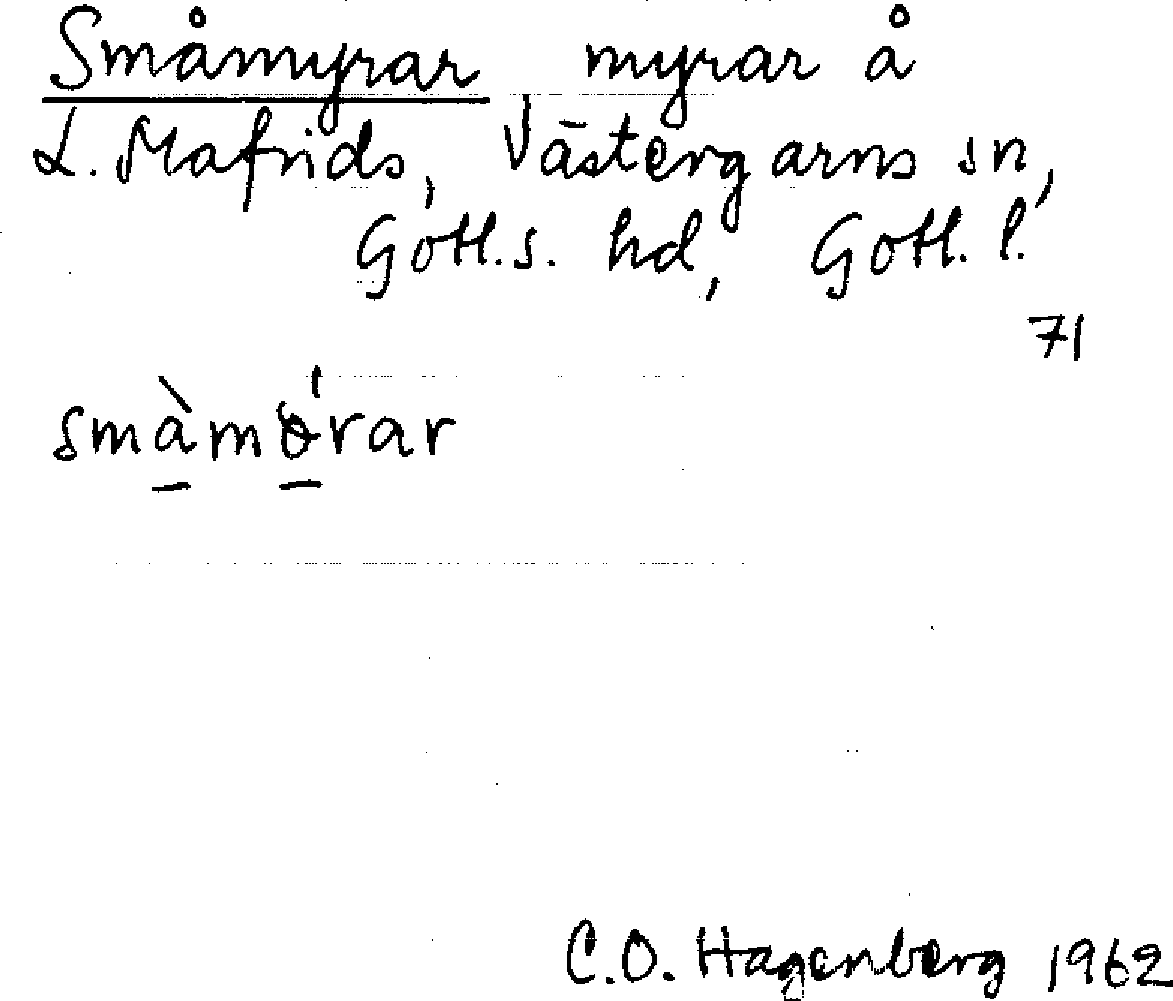 Småmyrar myrar å
L. Mafrids, Västergarns sn,
Gotl. s. hd, Gotl. l.
71
C.O. Hagenberg 1962